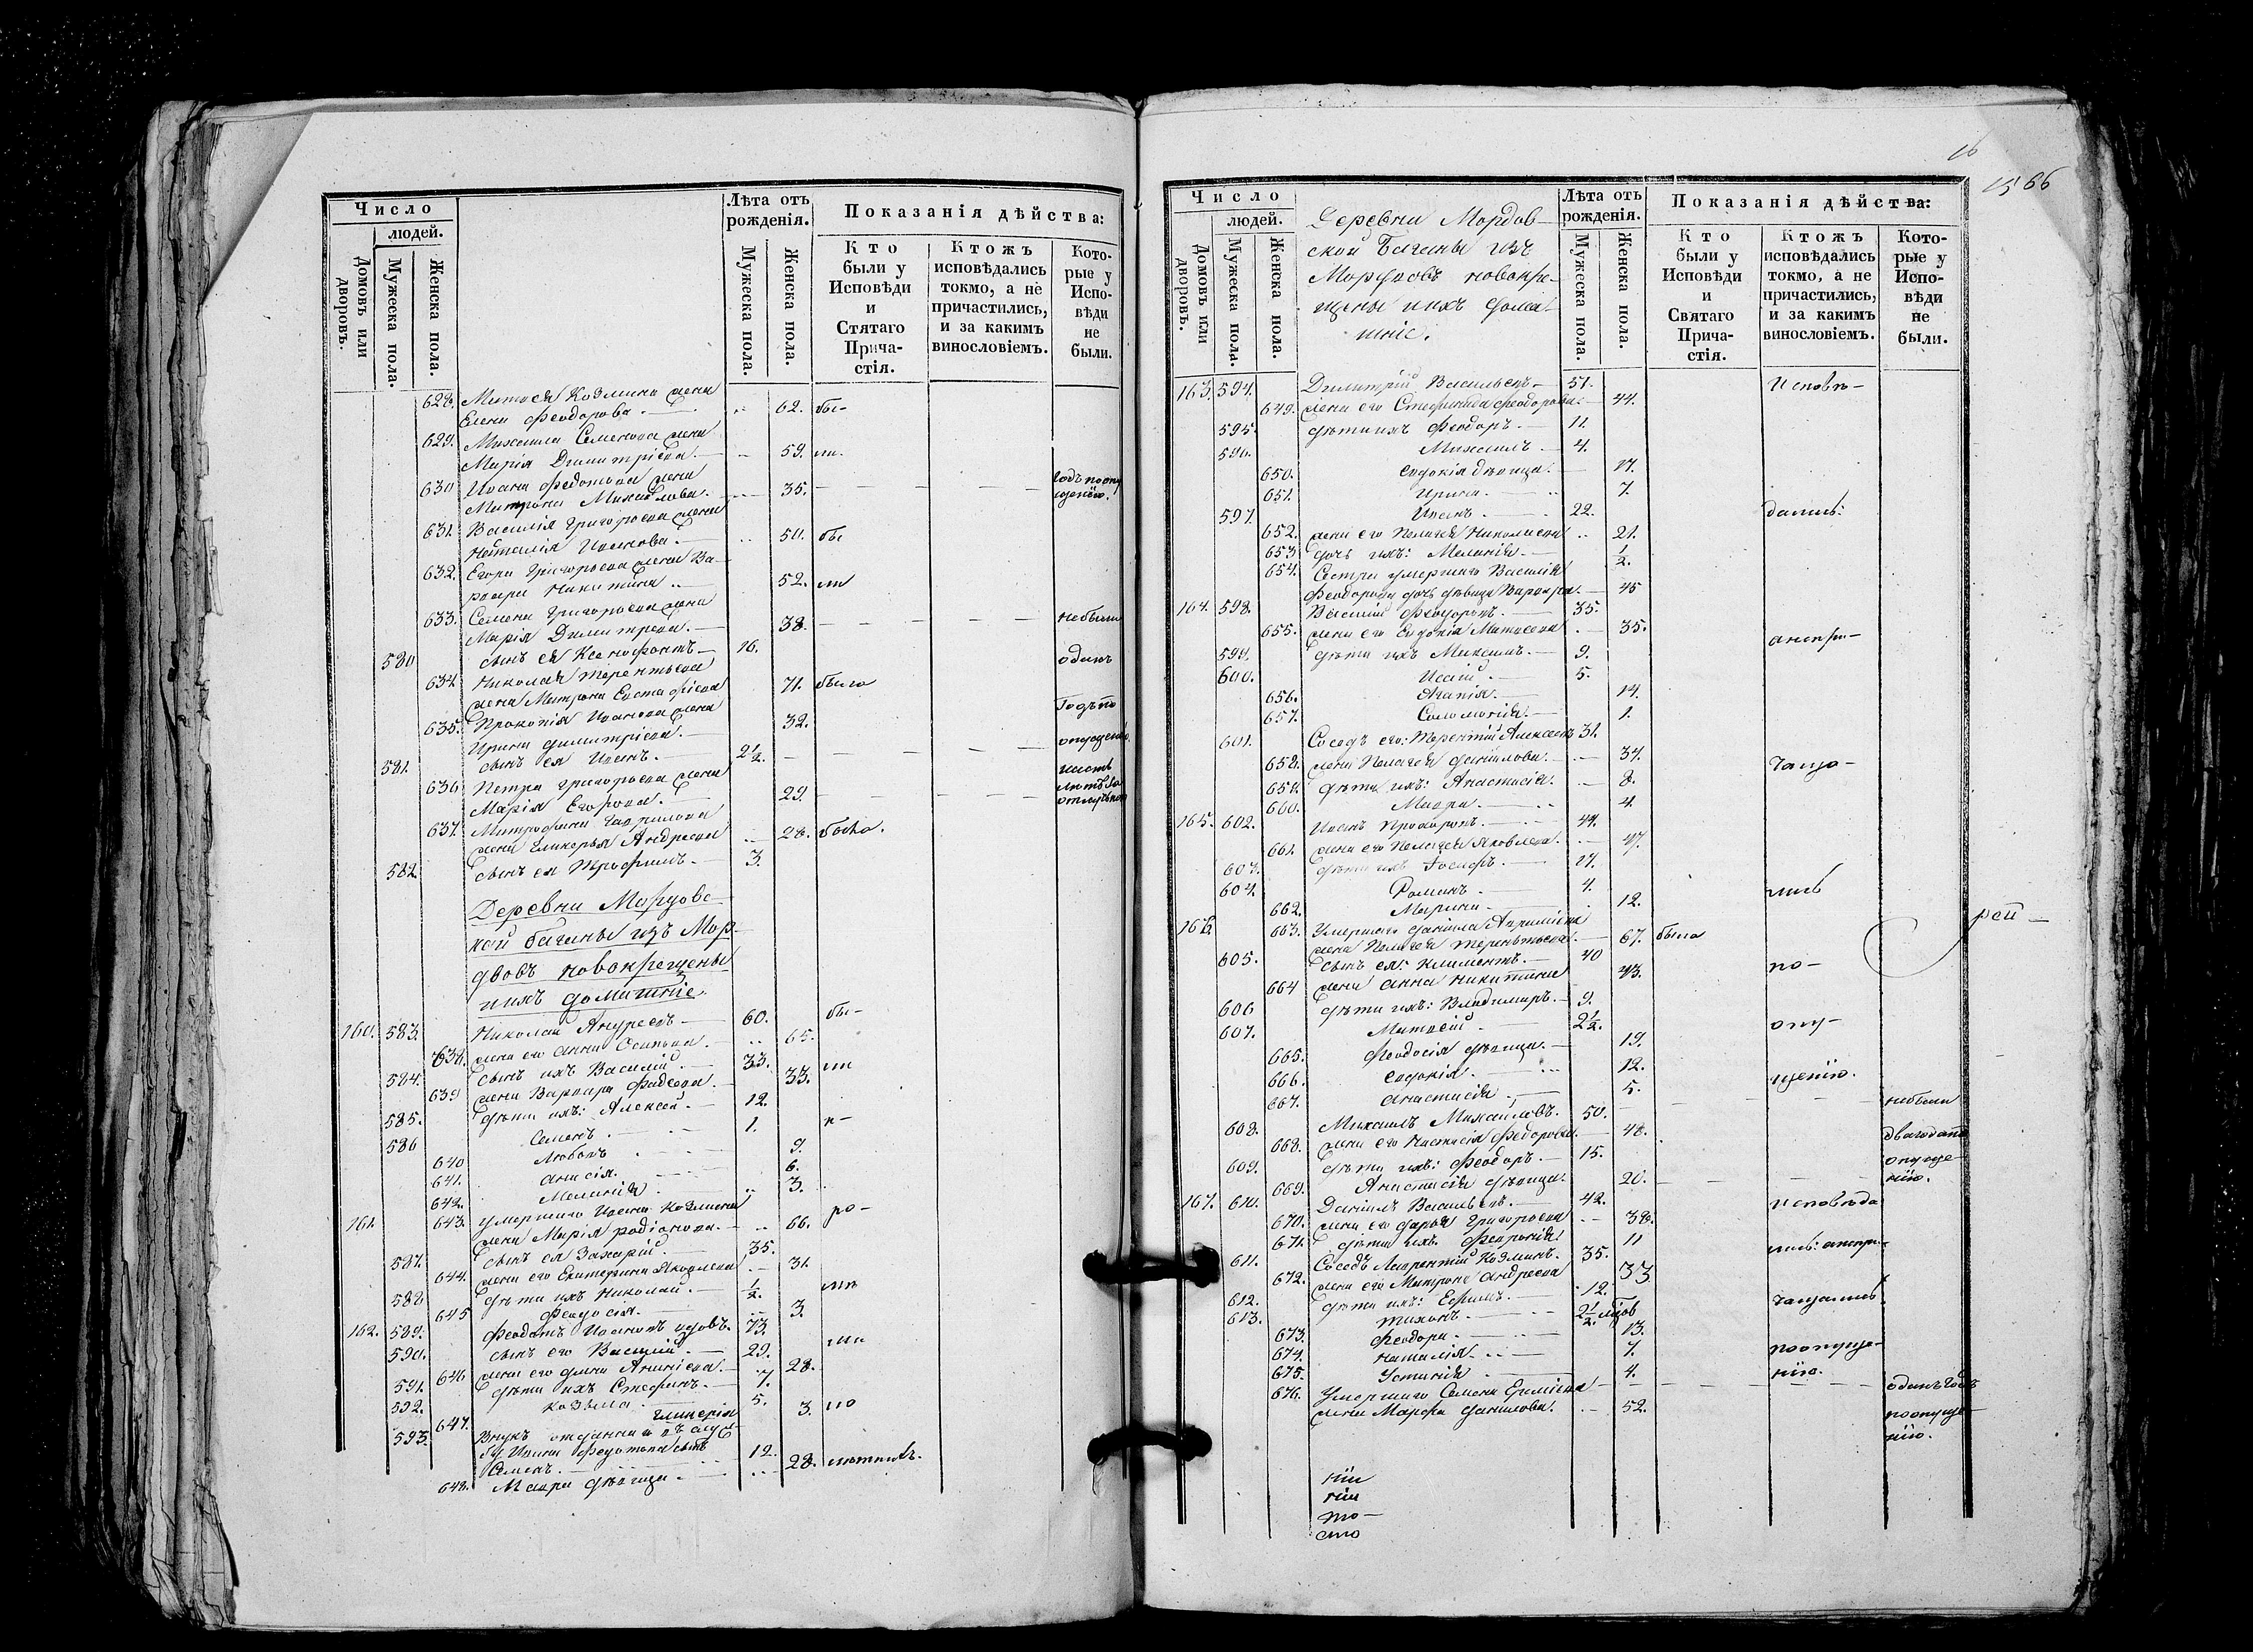 Число
людей.
Лѣта отъ
рожденія.
Показанія дѣйства:
Домовъ или дворовъ.
Мужеска пола.
Женска пола.
Мужеска пола.
Женска пола.
Кто были у Исповѣди и Стятаго Прича-стія.
Ктожъ исповѣдались токмо, а не причастились, и за какимъ винословіемъ.
Кото-рые у Испо-вѣди не были.
628. Матѳея Козмина жена
Елена Феодорова 62. бы-
629. Михаила Семенова жена
Марія Димитріева. 59. ли.
630 Ивана Федотова жена
Матрона Михайлова. 35. годъ по опу
щенію.
631. Василія Григорьева жена
Наталія Иванова. 50. бы
632. Егора Григорьева жена Ва-
рвара Никитина 52. ли
633. Семена Григорьева жена
Марія Димитрева. 38. небыли
580 сынъ ея Ксенофонтъ 16. одинъ
634 Николая Терентьева
жена Матрона Евстафіева 71. была
Годъ по
635. Прокопія Иванова жена
Ирина Димитріева. 32. опущенію
581. сынъ ея Иванъ. 2 1/2.
636 Петра Григорьева жена
Марія Егорова. 29.
637. Митрофана Гаврилова
жена Гликерья Андреева 28. была.
582. Сынъ ея Трофимъ. 3.
Деревни Мордовс-
кой багены изъ Мор-
двовъ новокрещены
и ихъ домашніе
160. 583. Николай Андреевъ 60. бы-
638. жена его Анна Осипова. 65.
584. сынъ ихъ Василій. 33. ли
639 жена Варвара Фадеева. 33.
585. дѣти ихъ: Алексей. 12.
586 Семенъ. 1. и-
640 Любовь 9.
641. Анисія. 6.
642. Меланія 3.
161. 643. умершаго Ивана Козмина
жена Марія Родіонова. 66. ро-
587. Сынъ ея Захарій. 35.
644. жена его Екатерина Яковлева 31.
588 дѣти ихъ Николай. 1/2. ли
645 Феодосія. 3.
162. 589. Феодотъ Ивановъ вдовъ. 73.
590. сынъ его Василій. 29. ли
646 жена его Анна Ананіева. 28.
591. дѣти ихъ Стефанъ. 7.
592. Козьма 5.
647. Гликерія 3. по
593. Внукъ
Ивана Федотова сынъ
Семенъ. 12.
648. Мавра дѣвица. 28.
16
1566
Число
людей.
Деревни Мордов-
ской Багены изъ
Мордвовъ новокре-
щены и ихъ дома-
шніе.
Лѣта отъ
рожденія.
Показанія дѣйства:
Домовъ или дворовъ.
Мужеска пола.
Женска пола.
Мужеска пола.
Женска пола.
Кто были у Исповѣди и Святаго Прича-стія.
Ктожъ исповѣдались токмо, а не причастились, и за какимъ винословіемъ.
Кото-рые у Испо-вѣди не были.
163. 594. Димитрій Васильевъ 51. Исповѣ-
649. жена его Стефанида Феодорова. 44.
595. дѣти ихъ Феодоръ. 11.
596. Михаилъ 4.
650. Евдокія дѣвица. 17.
651. Ирина. 7.
597. Иванъ 22. дались:
652. жена его Пелагея Николаева 21.
653 дочь ихъ: Меланія. 1/2.
654. Сестра умершаго Василія
Феодорова дочь дѣвица Варвара. 45
164. 598. Василій Феодоровъ. 35.
655. жена его Евдокія Матвеева 35. а непри-
599. дѣти ихъ Максимъ. 9.
600. Исаій. 5.
656. Агапія. 14.
657. Соломонія. 1.
601. Соседъ его: Терентій Алексеевъ 31.
658. жена Пелагея Данилова. 34. чаща-
659. дѣти ихъ: Анастасія. 8.
660. Мавра. 4.
165. 602. Иванъ Прохоровъ. 44.
661. жена его Пелагея Яковлева. 47.
603. дѣти ихъ Іосифъ. 17.
604. Романъ. 4. лись
662. Марина. 12.
166. 663. Умершаго Данила
жена Пелагея Терентьева. 67. была
605. сынъ ея: Климентъ. 40 по-
664 жена Анна Никитина 43.
606 дѣти ихъ: Владимиръ. 9.
607. Матвей. 2 1/2. опу-
665. Феодосія дѣвица. 19.
666. Евдокія. 12. щенію.
667. Анастасія 5.
608. Михаилъ Михайловъ. 50. небыли
668. жена его Настасія Федорова. 48. два года по
609. дѣти ихъ: Феодоръ. 15. опуще-
669. Анастасія дѣвица. 20. нію.
167. 610. Даніилъ Васильевъ. 42. исповѣда
670. жена его Дарья Григорьева 38.
671. дѣти ихъ Февронія 11 лись: а непри-
611. Соседъ Лаврентій Козминъ. 35.
672. жена его Матрона Андреева 33
612. дѣти ихъ: Ефимъ. 12. чащались
613. Тихонъ. 2 1/2
673. Феодора. 13.
674. Наталія. 7. по опуще-
675. Устинія 4. нію.
676. Умершаго Семена одинъ годъ
жена Марфа Данилова. 52. по опуще-
нію.